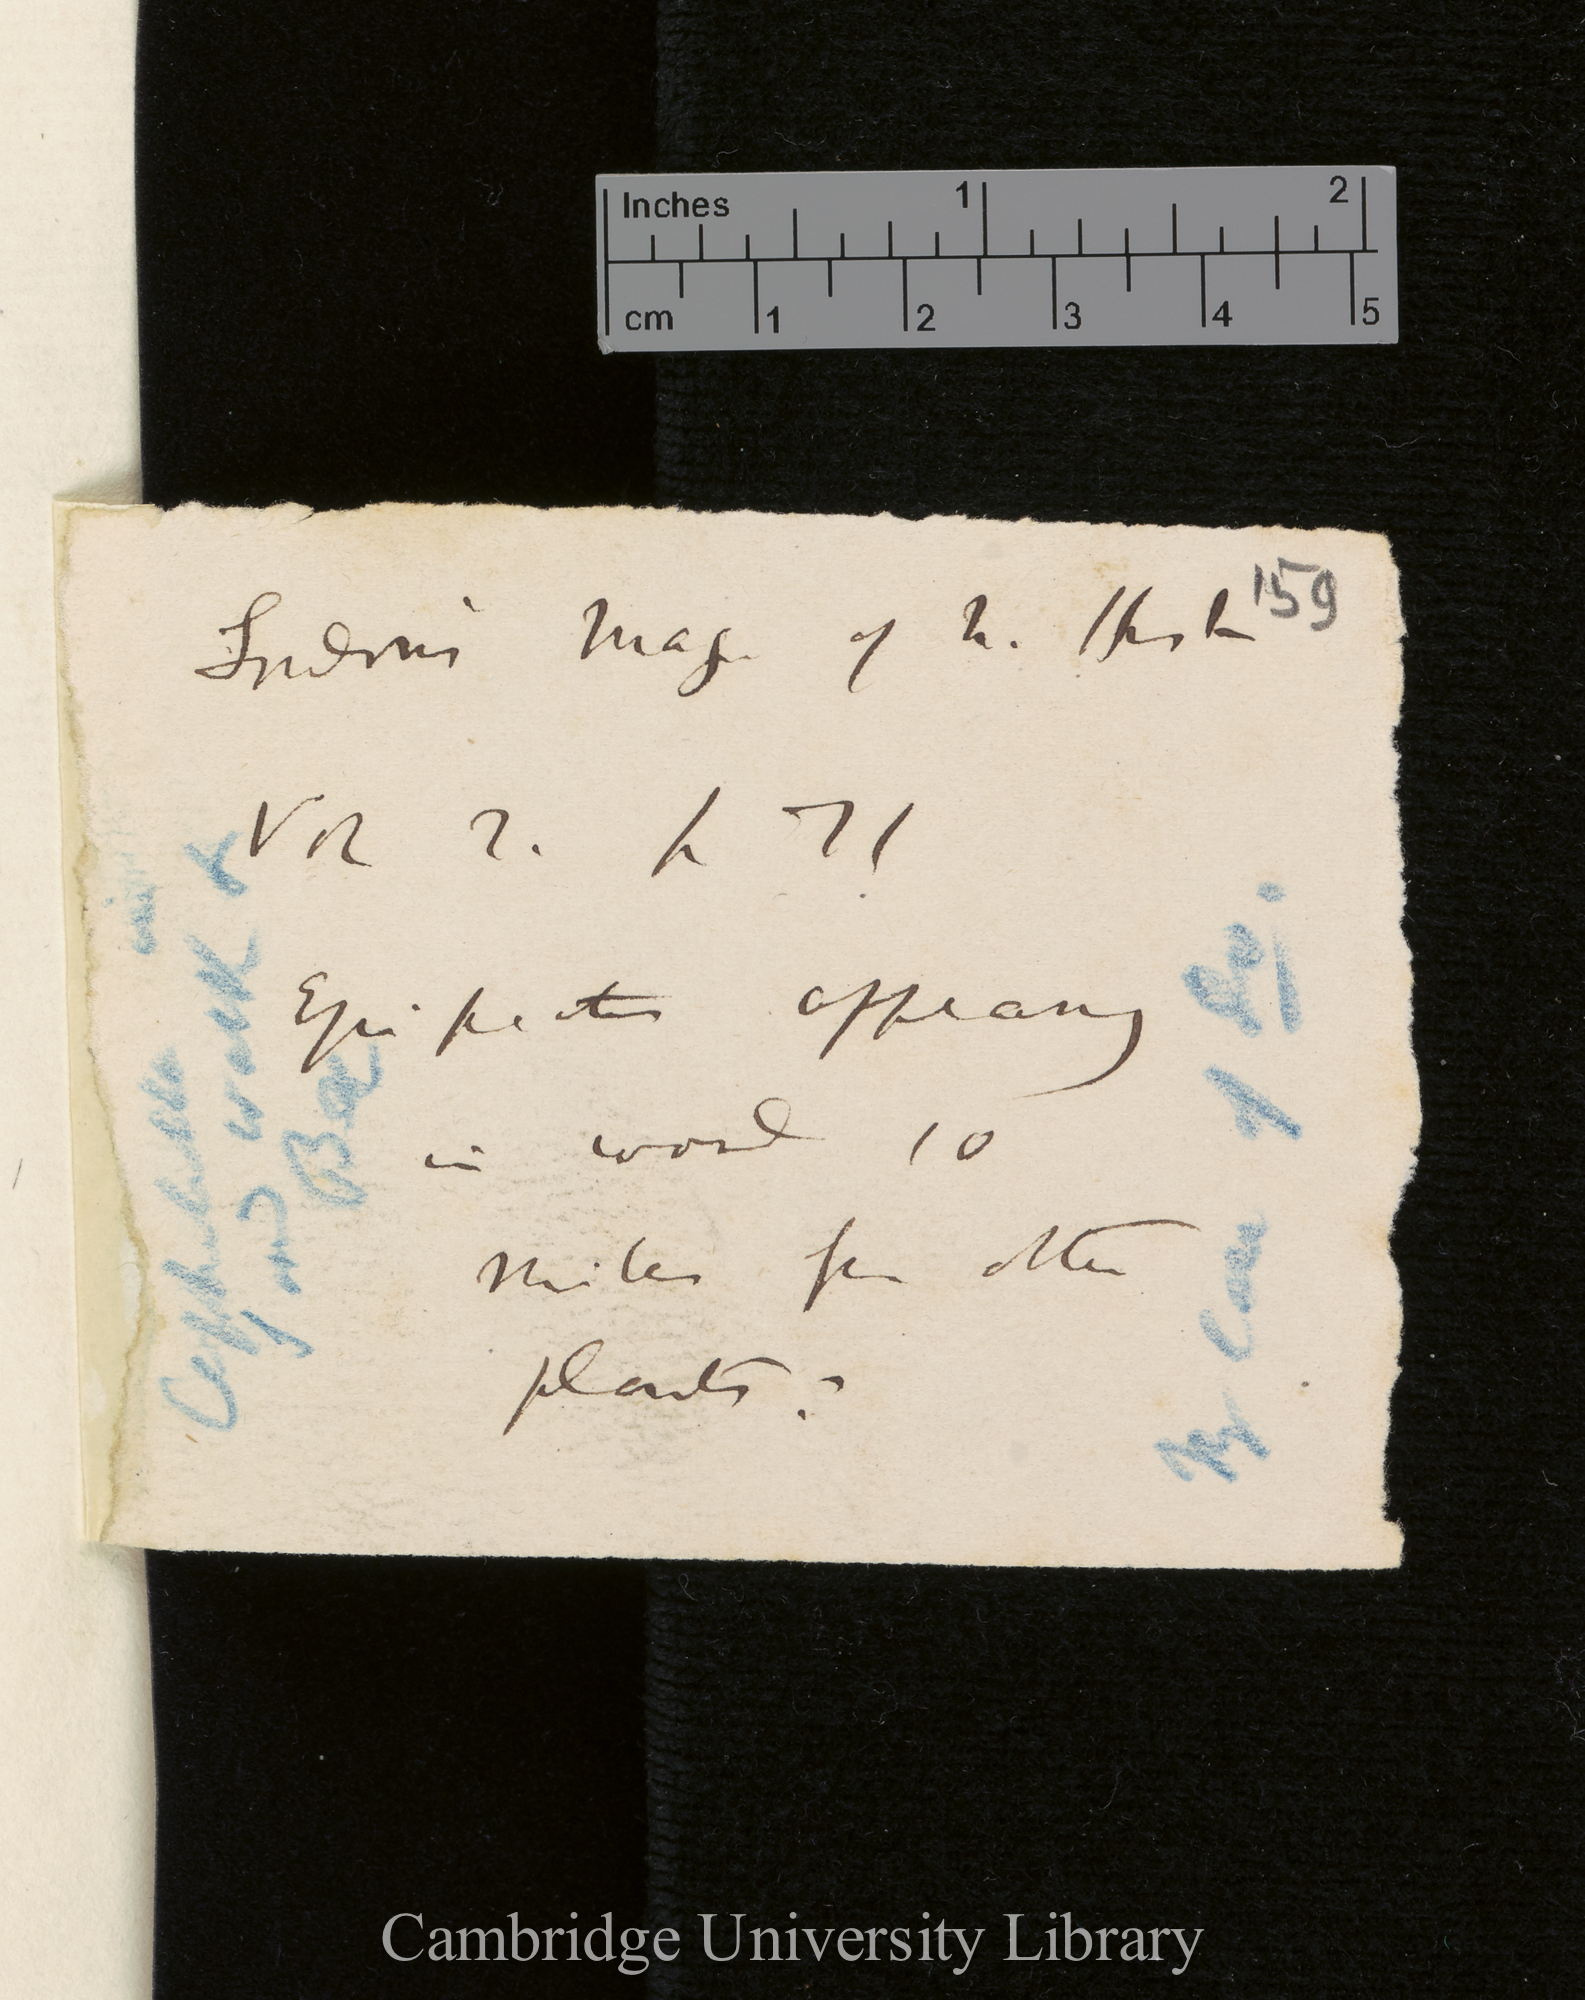 Inches 1 2
cm 1 2 3 4 5
159
Loudon's Mag. of N. Hist
Vol 2. p 71
Epipactis appearing
in wood 10
miles from other
plants?
Cephalanthera
in walk &
Bee
My Case of
Cambridge University Library